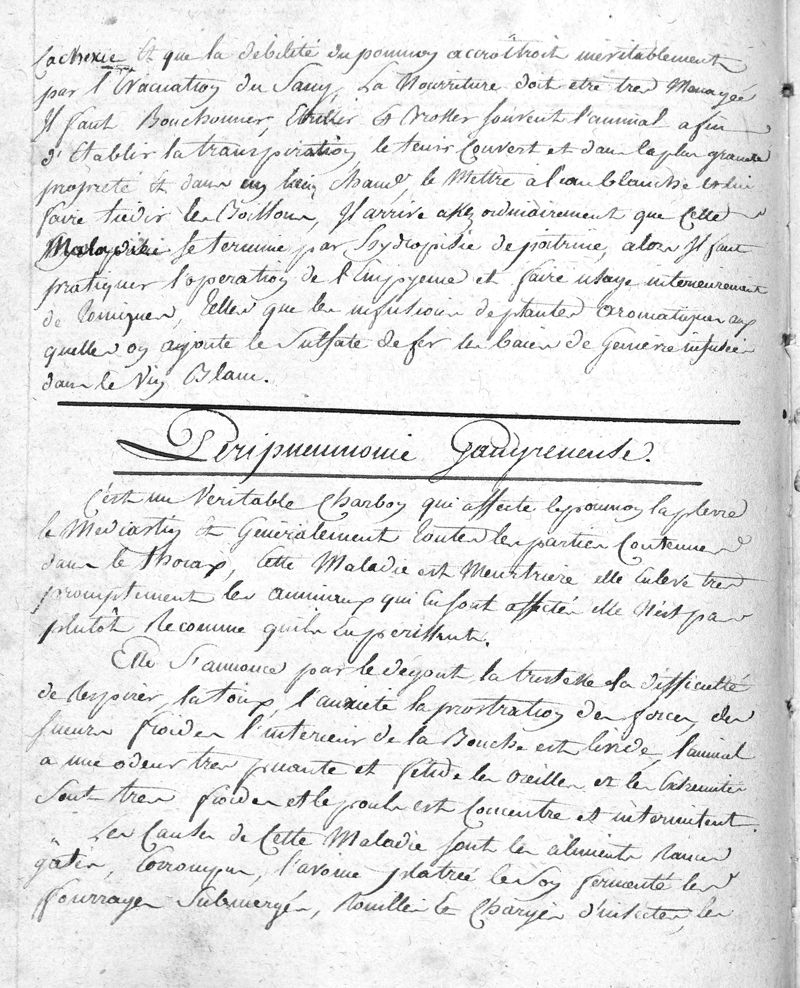 Cachexie Et que la débilité du poumon accroîtroit inévitablement
par l'Evacuation du Sang, La Nourriture doit etre tres Menagée
Il faut Bouchonner, Etriller Et Frotter souvent l'animal afin
d'Etablir la transpiration, le tenir Couvert et dans la plus grande
propreté Et dans un lieu chaud, le Mettre a l'eau blanche et lui
faire tiedir les Boissons, Il arrive assez ordinairement que Cette
Maladie se termine par l'hydropisie de poitrine, alors Il faut
pratiquer l'operation de l'Empyeme et faire usage interieurement
de Toniques, telles que les infusions de plantes aromatiques aux
quelles on ajoute le Sulfate de fer les baies de Genievre infusées
dans le Vin Blanc.
Péripneumonie Gangreneuse.
C'est un Veritable Charbon qui affecte le poumon la plevre
le Mediastin Et Généralement toutes les parties Contenues
dans le thorax, Cette Maladie est Meurtriere elle Enleve tres
promptement les animaux qui En sont affectés elle n'est pas
plutôt Reconnue qu'ils En perissent.
Elle S'annonce par le degout la tristesse la difficulté
de Respirer, la toux, l'anxieté la prostration des forces, des
sueurs froides l'interieur de la Bouche est livide, l'animal
a une odeur tres puante et fetide les oreilles et les Extremites
sont tres froides et le pouls est Concentré et intermitent.
Les Causes de Cette Maladie sont les aliments Rances
gâtés, Corrompus, l'avoine platrée le Son fermenté les
fourrages Submergés, Rouillés Et Chargés d'insectes, les